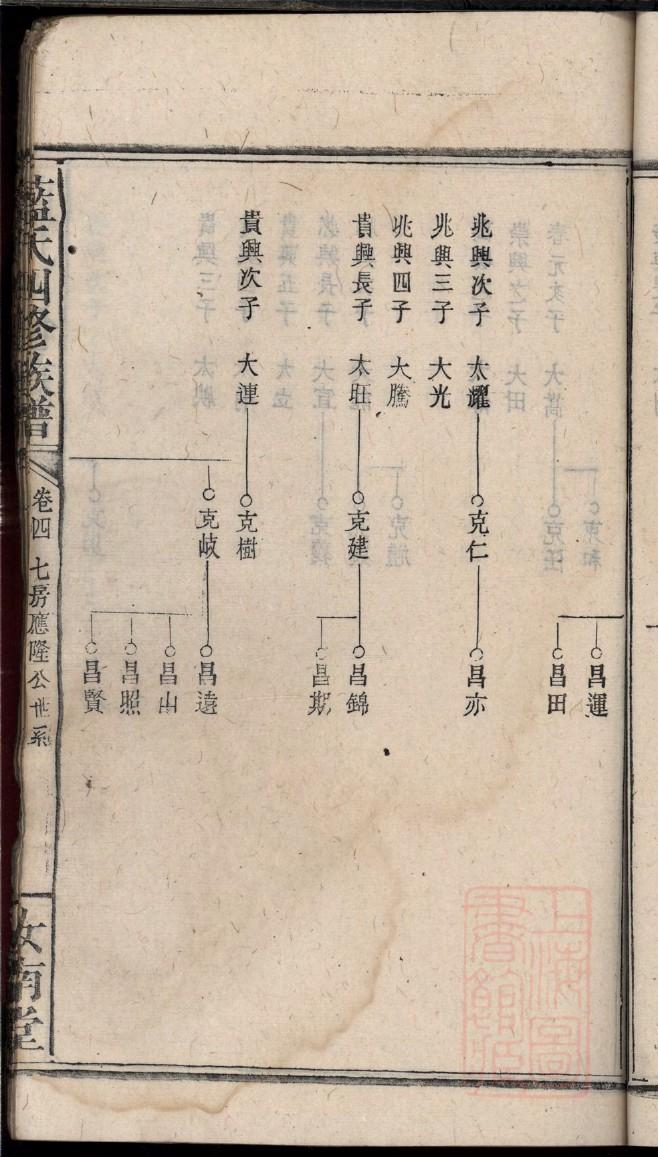 昌運
昌田
兆興次子 太耀 克仁 昌亦
兆興三子 大光
兆興四子 大騰
貴興長子 太旺 克建 昌錦
昌期
貴興次子 大連 克樹
克岐 昌遠
昌山
昌照
昌賢
藍氏四修族譜 卷四 七房應隆公世系 汝南堂
上海圖書館藏